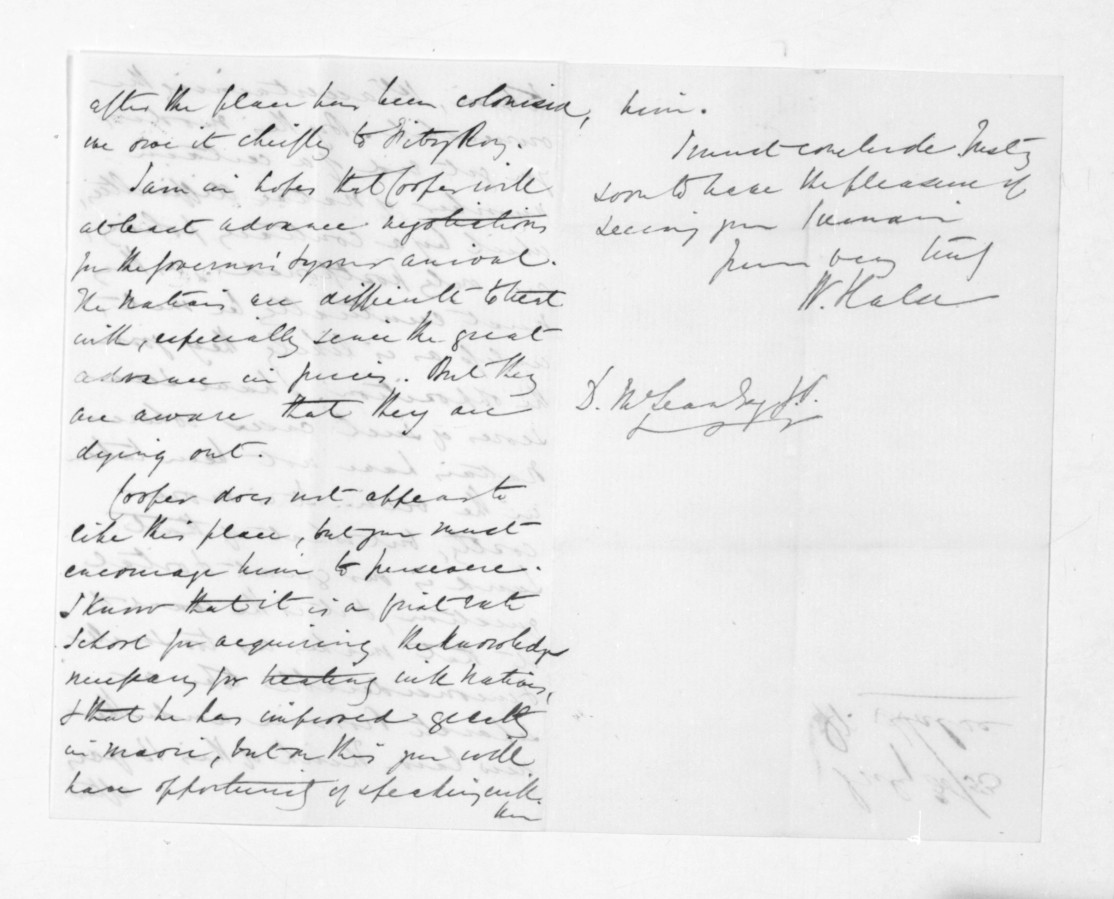 after the place has been colonised,
we owe it chiefly to FitzRoy.
I am in hopes that Cooper will
at least advance negotiations
for the Governor's arrival.
The Natives are difficult to treat
with, especially since the great
advance in prices. But they
are aware that they are
dying out.
Cooper does not appear to
like this place, but you must
encourage him to persevere.
I know that it is a first rate
School for acquiring the knowledge
necessary for treating with Natives,
& that he has improved greatly
in maori, but on this you will
have opportunity of speaking with
him
him.
I must conclude Trusting
soon to have the pleasure of
seeing you I remain
Yours very truly
W. Halse
D. McLean Esq J.P.